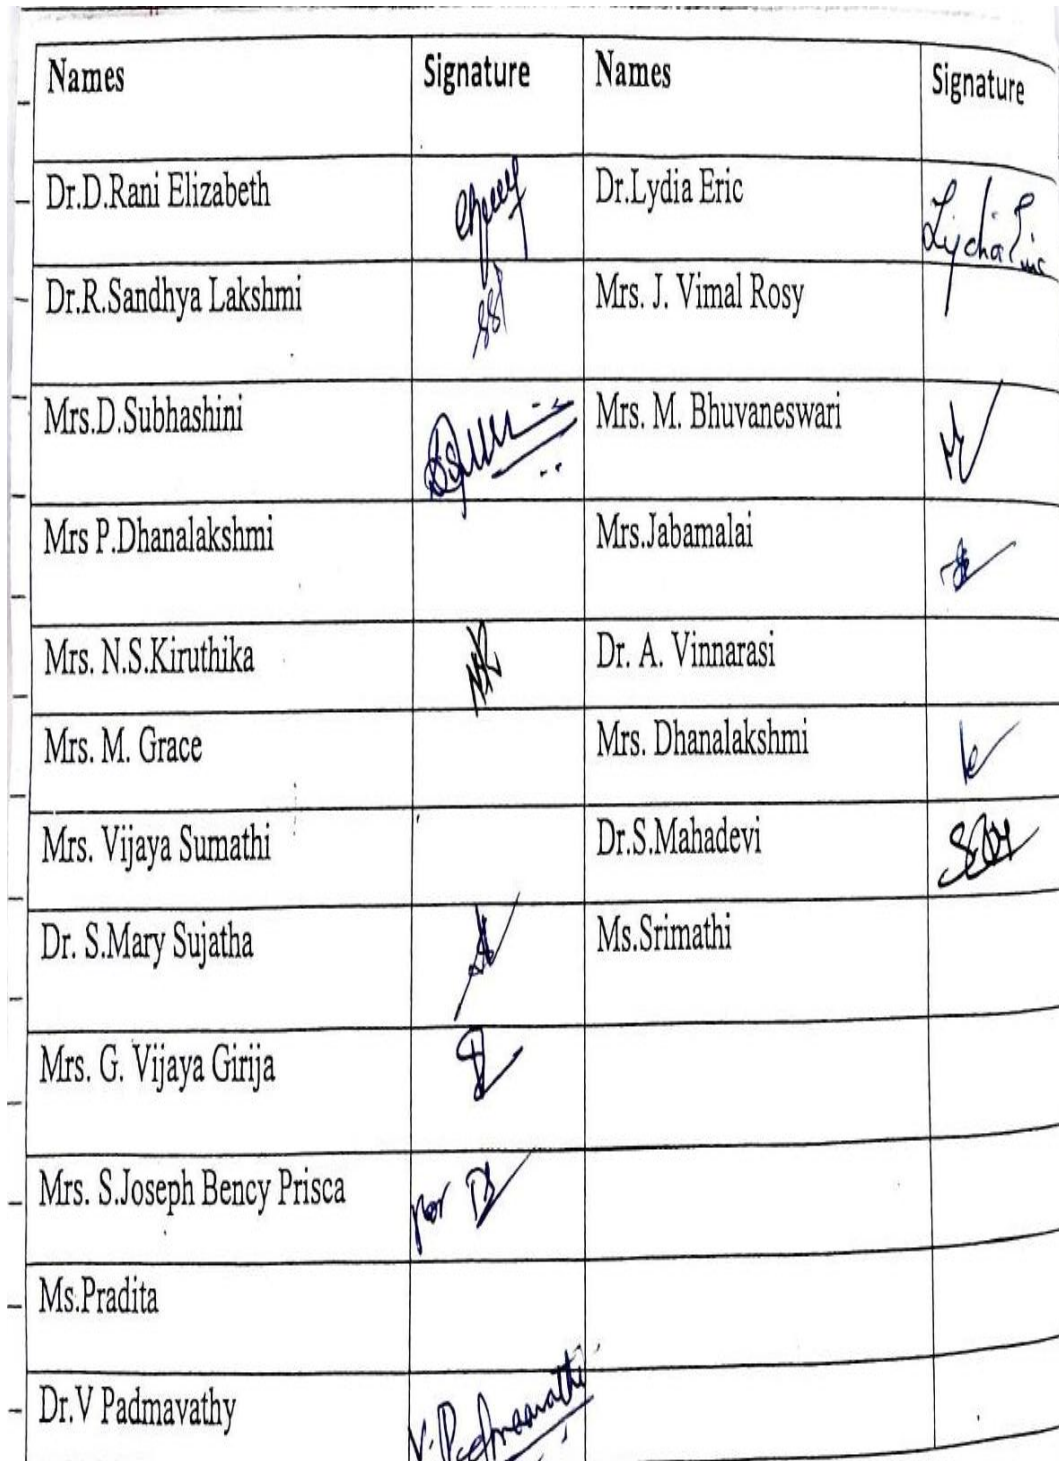 Names Signature Names Signature
Dr.D.Rani Elizabeth Dr.Lydia Eric Lydia Eric
Dr.R.Sandhya Lakshmi Mrs. J. Vimal Rosy
Mrs.D.Subhashini Mrs. M. Bhuvaneswari
Mrs P.Dhanalakshmi Mrs.Jabamalai
Mrs. N.S.Kiruthika Dr. A. Vinnarasi
Mrs. M. Grace Mrs. Dhanalakshmi
Mrs. Vijaya Sumathi Dr.S.Mahadevi
Dr. S.Mary Sujatha Ms.Srimathi
Mrs. G. Vijaya Girija
Mrs. S.Joseph Bency Prisca
Ms.Pradita
Dr.V Padmavathy V. Padmavathi